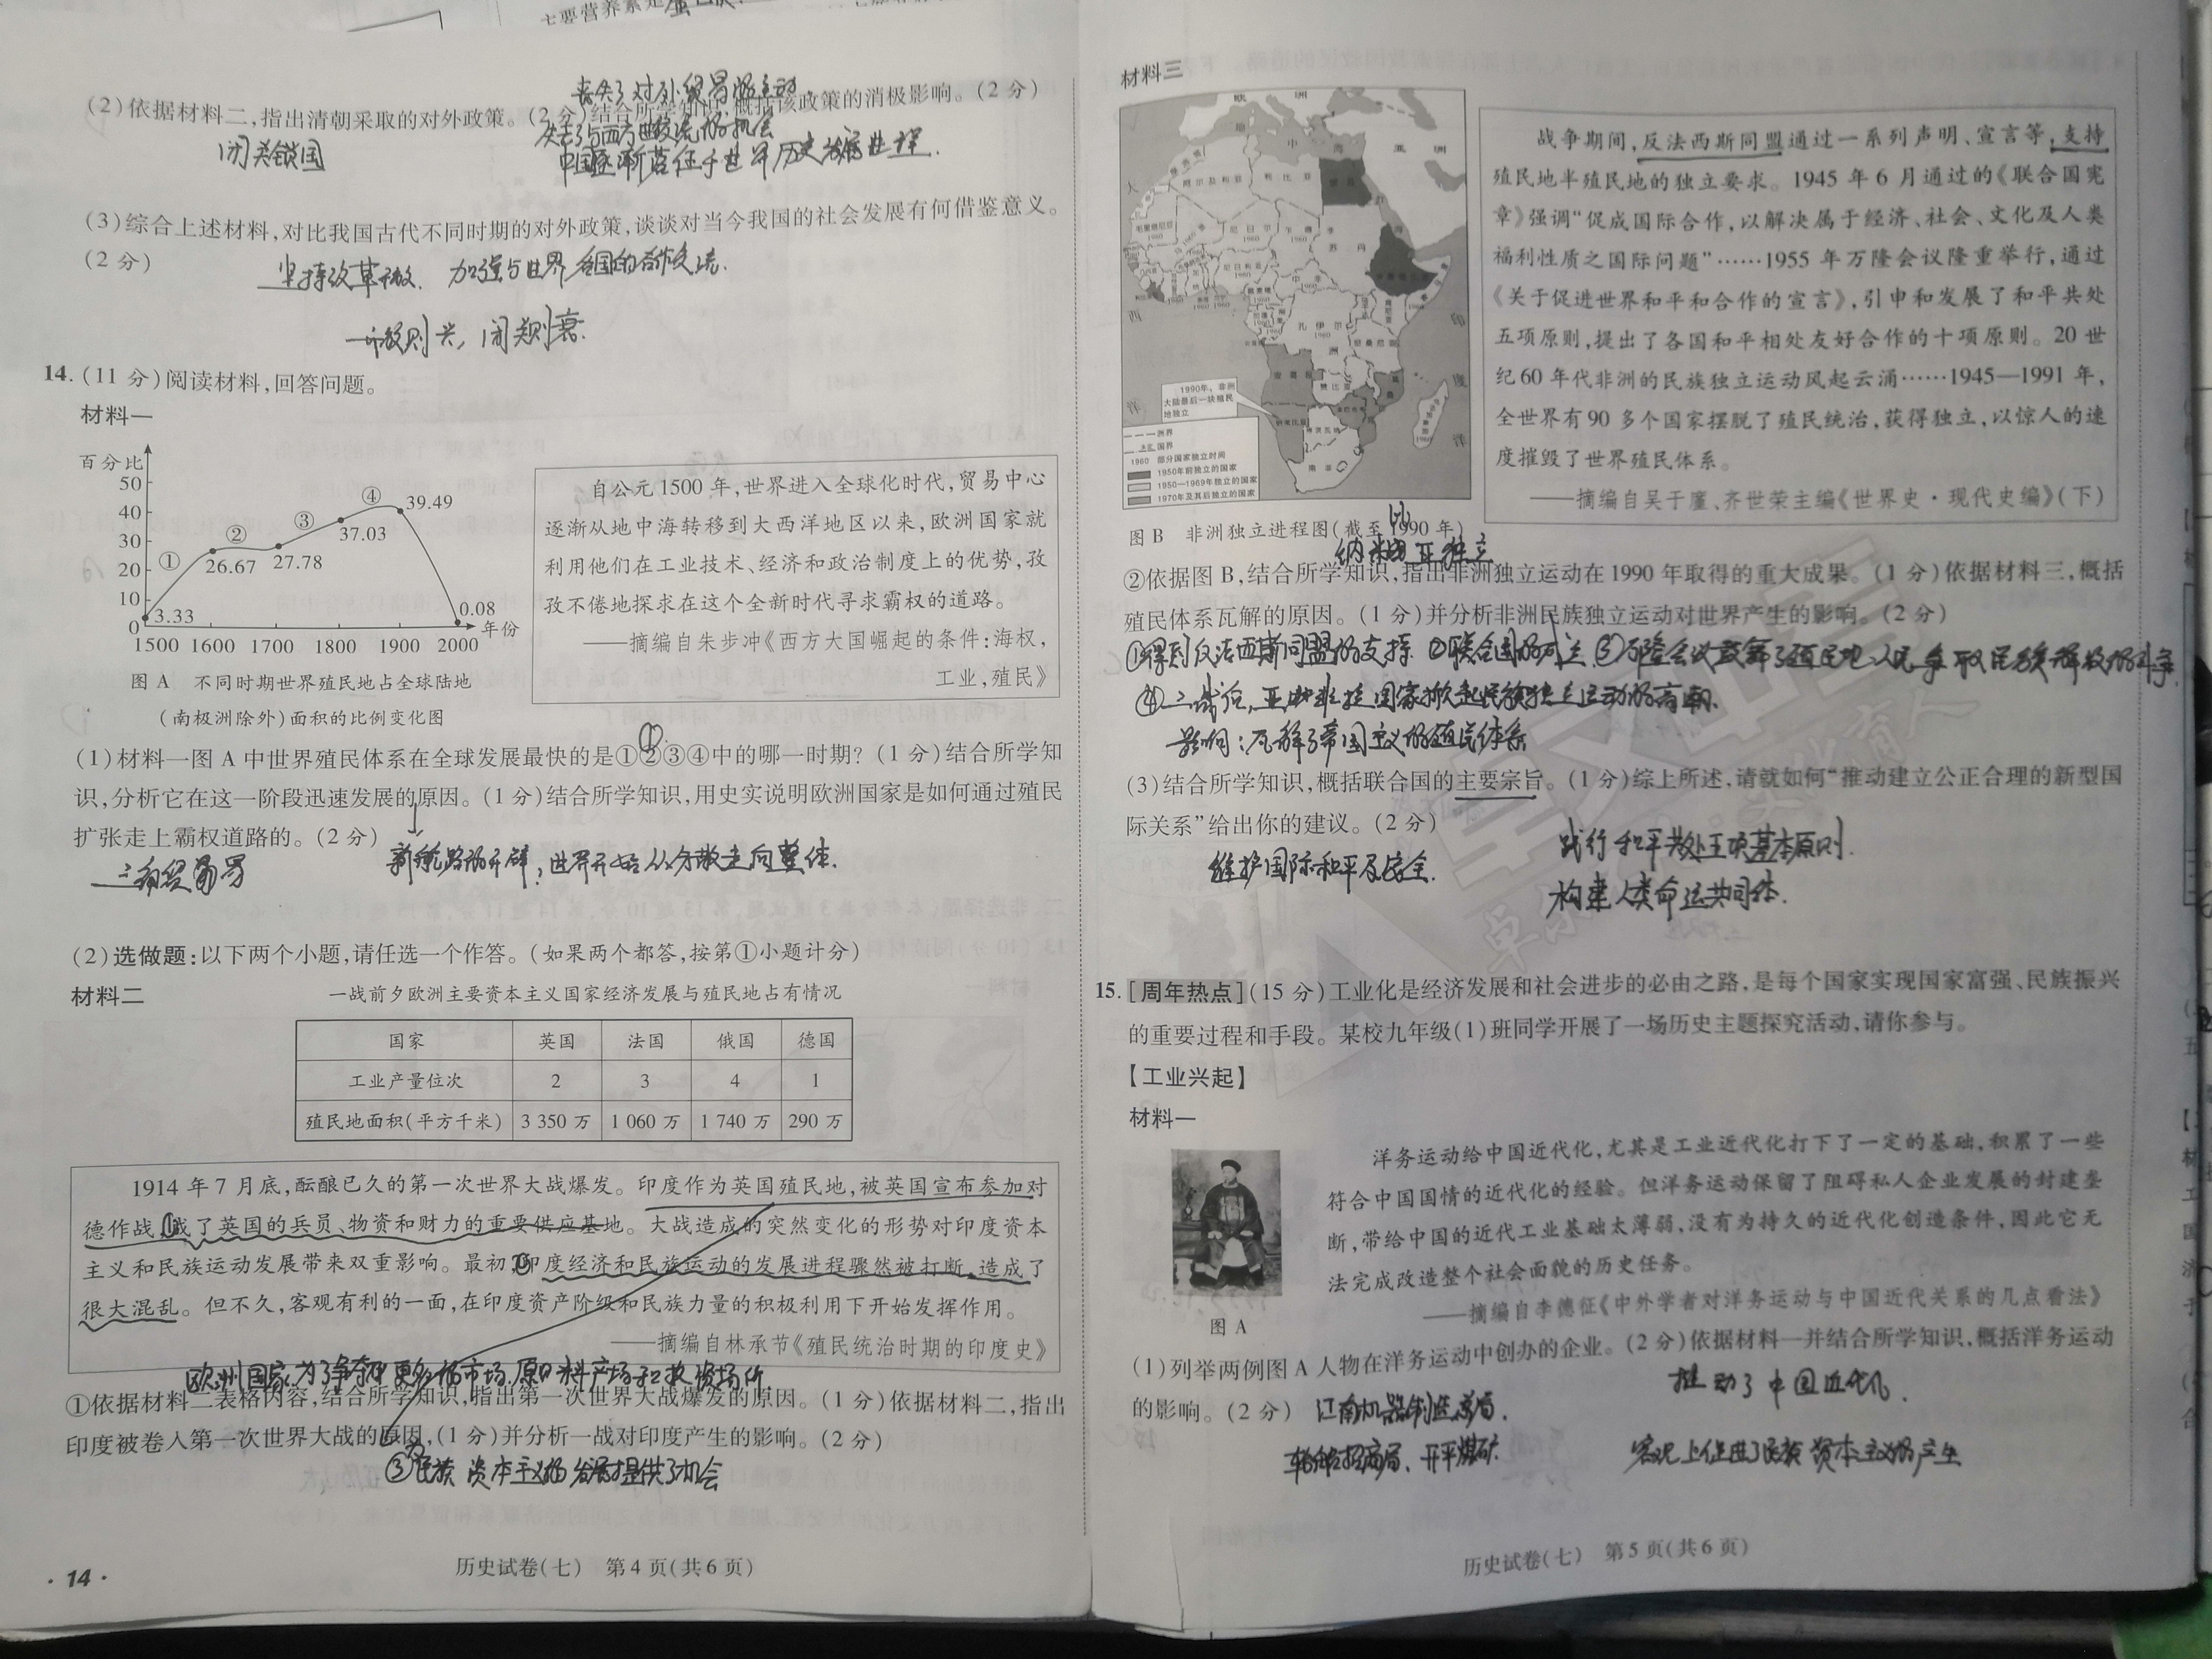 主要营养素是
(2)依据材料二,指出清朝采取的对外政策。(2分)结合所学知识,概括该政策的消极影响。(2分)
丧失了对外贸易的主动
闭关锁国
失去了与西方世界交流的机会
中国逐渐落伍于世界历史发展进程.
(3)综合上述材料,对比我国古代不同时期的对外政策,谈谈对当今我国的社会发展有何借鉴意义。
(2分)
坚持改革开放. 加强与世界各国的合作交流.
开放则兴,闭关则衰.
14.(11分)阅读材料,回答问题。
材料一
百分比
50
40
30
20
10
0
① ② ③ ④
3.33 26.67 27.78 37.03 39.49 0.08
年份
1500 1600 1700 1800 1900 2000
图A 不同时期世界殖民地占全球陆地
(南极洲除外)面积的比例变化图
自公元1500年,世界进入全球化时代,贸易中心
逐渐从地中海转移到大西洋地区以来,欧洲国家就
利用他们在工业技术、经济和政治制度上的优势,孜
孜不倦地探求在这个全新时代寻求霸权的道路。
——摘编自朱步冲《西方大国崛起的条件:海权,
工业,殖民》
①
(1)材料一图A中世界殖民体系在全球发展最快的是①②③④中的哪一时期?(1分)结合所学知
识,分析它在这一阶段迅速发展的原因。(1分)结合所学知识,用史实说明欧洲国家是如何通过殖民
扩张走上霸权道路的。(2分)
三角贸易
新航路的开辟;世界开始从分散走向整体.
(2)选做题:以下两个小题,请任选一个作答。(如果两个都答,按第①小题计分)
材料二 一战前夕欧洲主要资本主义国家经济发展与殖民地占有情况
国家 英国 法国 俄国 德国
工业产量位次 2 3 4 1
殖民地面积(平方千米) 3 350万 1 060万 1 740万 290万
1914年7月底,酝酿已久的第一次世界大战爆发。印度作为英国殖民地,被英国宣布参加对
德作战,成了英国的兵员、物资和财力的重要供应基地。大战造成的突然变化的形势对印度资本
主义和民族运动发展带来双重影响。最初,印度经济和民族运动的发展进程骤然被打断,造成了
很大混乱。但不久,客观有利的一面,在印度资产阶级和民族力量的积极利用下开始发挥作用。
——摘编自林承节《殖民统治时期的印度史》
欧洲国家为了争夺更多的市场、原料产场和投资场所
①依据材料二表格内容,结合所学知识,指出第一次世界大战爆发的原因。(1分)依据材料二,指出
印度被卷入第一次世界大战的原因,(1分)并分析一战对印度产生的影响。(2分)
③为民族资本主义的发展提供了机会
·14·
历史试卷(七) 第4页(共6页)
材料三
1990年,非洲
大陆最后一块殖民
地独立
洲界
国界
1960 部分国家独立时间
1950年前独立的国家
1950—1969年独立的国家
1970年及其后独立的国家
图B 非洲独立进程图(截至1990年)
战争期间,反法西斯同盟通过一系列声明、宣言等,支持
殖民地半殖民地的独立要求。1945年6月通过的《联合国宪
章》强调“促成国际合作,以解决属于经济、社会、文化及人类
福利性质之国际问题”……1955年万隆会议隆重举行,通过
《关于促进世界和平和合作的宣言》,引申和发展了和平共处
五项原则,提出了各国和平相处友好合作的十项原则。20世
纪60年代非洲的民族独立运动风起云涌……1945—1991年,
全世界有90多个国家摆脱了殖民统治,获得独立,以惊人的速
度摧毁了世界殖民体系。
——摘编自吴于廑、齐世荣主编《世界史·现代史编》(下)
纳米比亚独立
②依据图B,结合所学知识,指出非洲独立运动在1990年取得的重大成果。(1分)依据材料三,概括
殖民体系瓦解的原因。(1分)并分析非洲民族独立运动对世界产生的影响。(2分)
①得到反法西斯同盟的支持 ②联合国的成立 ③万隆会议鼓舞了殖民地人民争取民族解放的斗争.
④二战后,亚非拉国家掀起民族独立运动的高潮.
影响:瓦解了帝国主义的殖民体系
(3)结合所学知识,概括联合国的主要宗旨。(1分)综上所述,请就如何“推动建立公正合理的新型国
际关系”给出你的建议。(2分)
维护国际和平及安全.
践行和平共处五项基本原则.
构建人类命运共同体.
15.[周年热点](15分)工业化是经济发展和社会进步的必由之路,是每个国家实现国家富强、民族振兴
的重要过程和手段。某校九年级(1)班同学开展了一场历史主题探究活动,请你参与。
【工业兴起】
材料一
图A
洋务运动给中国近代化,尤其是工业近代化打下了一定的基础,积累了一些
符合中国国情的近代化的经验。但洋务运动保留了阻碍私人企业发展的封建垄
断,带给中国的近代工业基础太薄弱,没有为持久的近代化创造条件,因此它无
法完成改造整个社会面貌的历史任务。
——摘编自李德征《中外学者对洋务运动与中国近代关系的几点看法》
(1)列举两例图A人物在洋务运动中创办的企业。(2分)依据材料一并结合所学知识,概括洋务运动
的影响。(2分)
江南机器制造总局.
轮船招商局、开平煤矿.
推动了中国近代化.
客观上促进了民族资本主义的产生
历史试卷(七) 第5页(共6页)